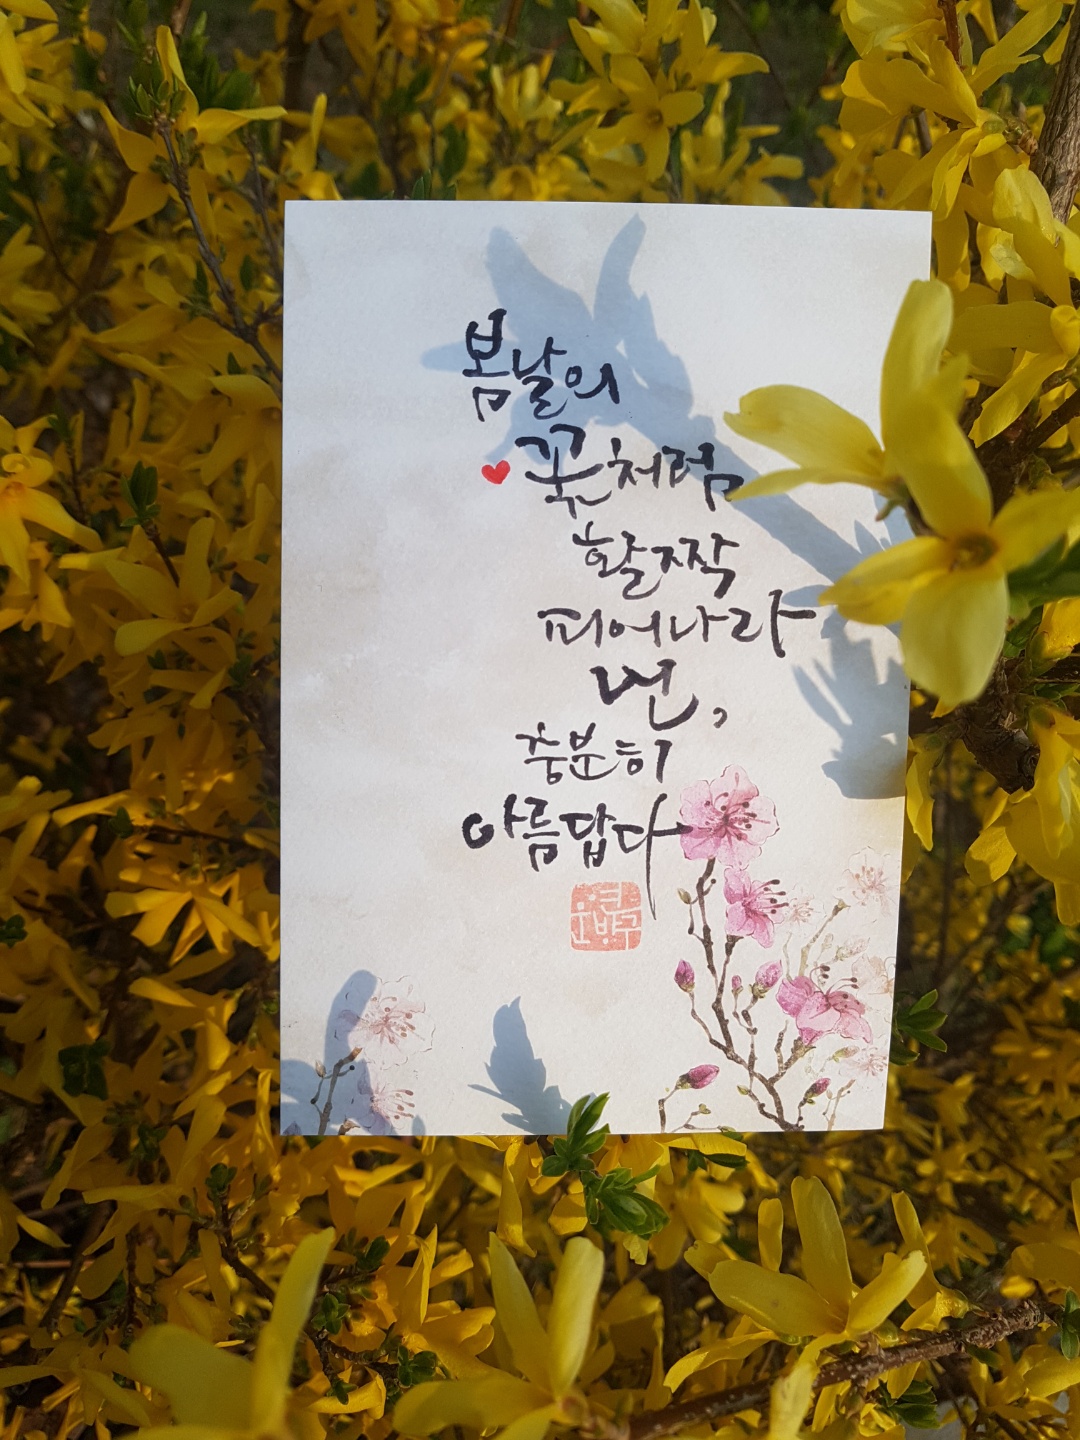 봄날의
꽃처럼
활짝
피어나라
넌,
충분히
아름답다